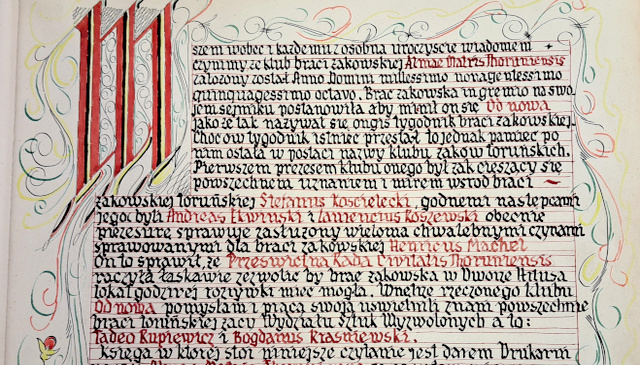 Wszem wobec i każdemu z osobna uroczyście wiadomem
czynimy że klub braci żakowskiej Almae Matris Thoruniensis
założony został Anno Domini millessimo nonagentessimo
quinquagessimo octavo. Brać żakowska in gremio na swo-
jem sejmiku postanowiła aby mienił on się Od nowa
jako że tak nazywał się ongiś tygodnik braci żakowskiej.
Choć ów tygodnik istnieć przestał to jednak pamięć po
nim ostała w postaci nazwy klubu żaków toruńskich.
Pierwszem prezesem klubu onego był żak cieszący się
powszechnem uznaniem i mirem wśród braci
żakowskiej toruńskiej Stefanus Kościelecki, godnemi następcami
jego byli Andreas Ekwiński i Laurencius Koszewski obecnie
prezesurę sprawuje zasłużony wieloma chwalebnymi czynami
sprawowanymi dla braci żakowskiej Henricus Machel
On to sprawił że Prześwietna Rada Civitatis Thoruniensis
raczyła łaskawie zezwolić by brać żakowska w Dworze Artusa
lokal godziwej rozrywki mieć mogła. Wnętrze rzeczonego klubu
Od nowa pomysłami i pracą swoją uświetnili znani powszechnie
braci toruńskiej żacy Wydziału Sztuk Wyzwolonych a to:
Tadeo Kupiewicz i Bogdanus Kraśniewski.
Księga w której stoi niniejsze czytanie jest darem Drukarni